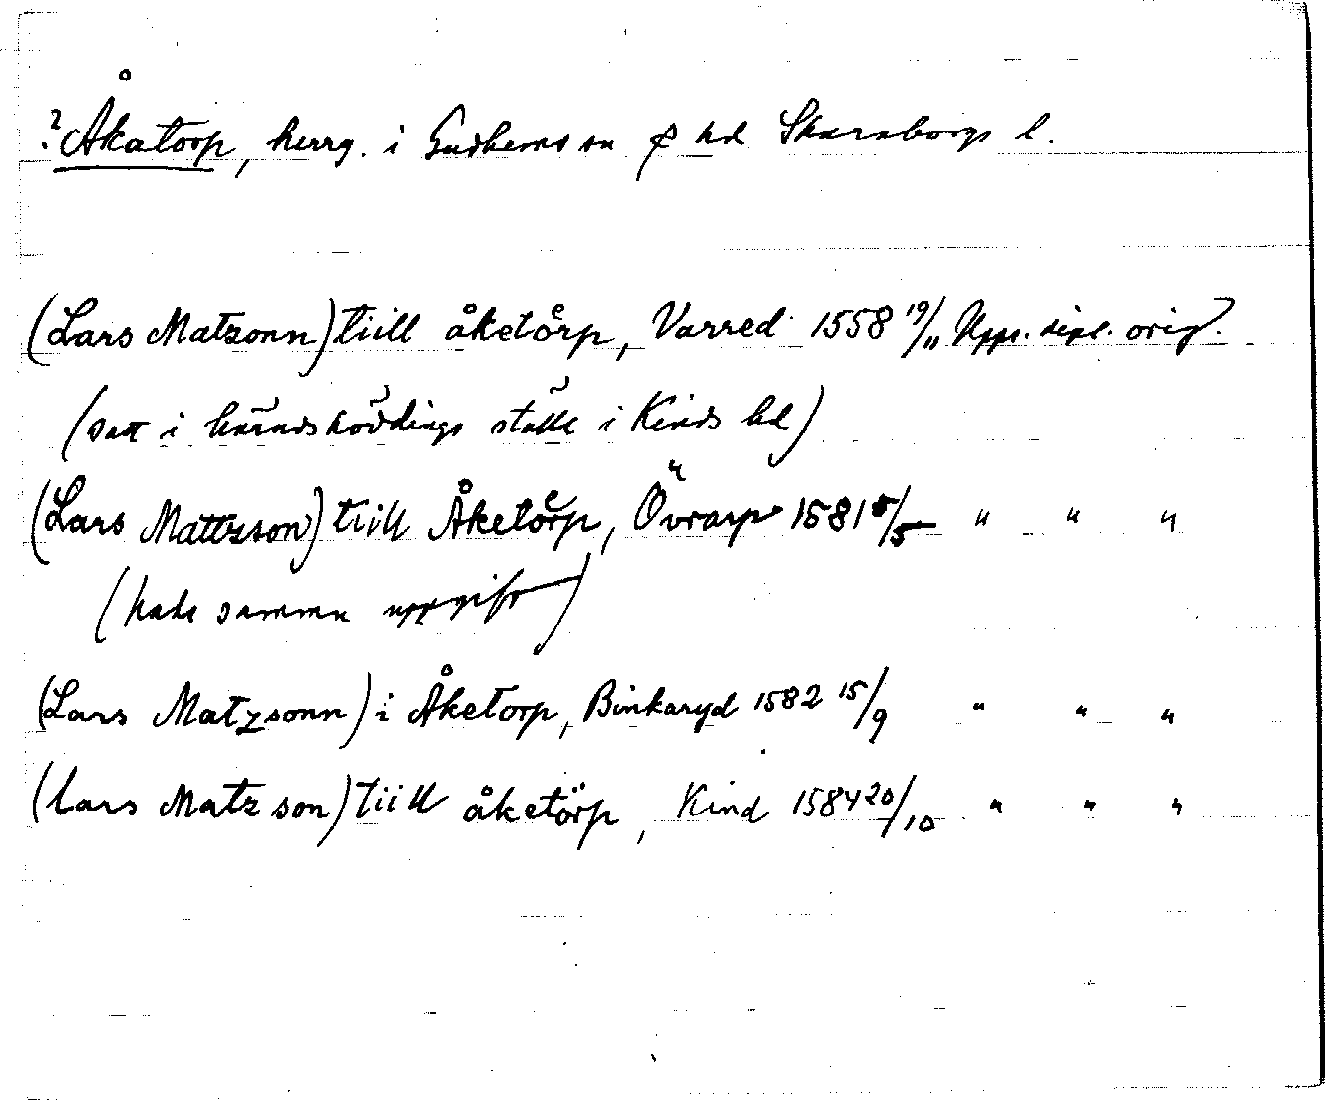 ? Åkatorp, herrg. i Gudhems sn o hd Skaraborgs l.
(Lars Matzonn) tiill åketo̊rp, Varred 1558 19/11 Upps. dipl. orig.
(satt i häradshövdings ställe i Kinds hd)
(Lars Mattzson) tiill Åketo̊rp, Övrarp 1581 5/5 " " "
(hade samma uppgift)
(Lars Matzsonn) i Åketorp, Binkaryd 1582 15/9 " " "
(lars Matz son) tiill åketörp, Kind 1584 20/10 " " "